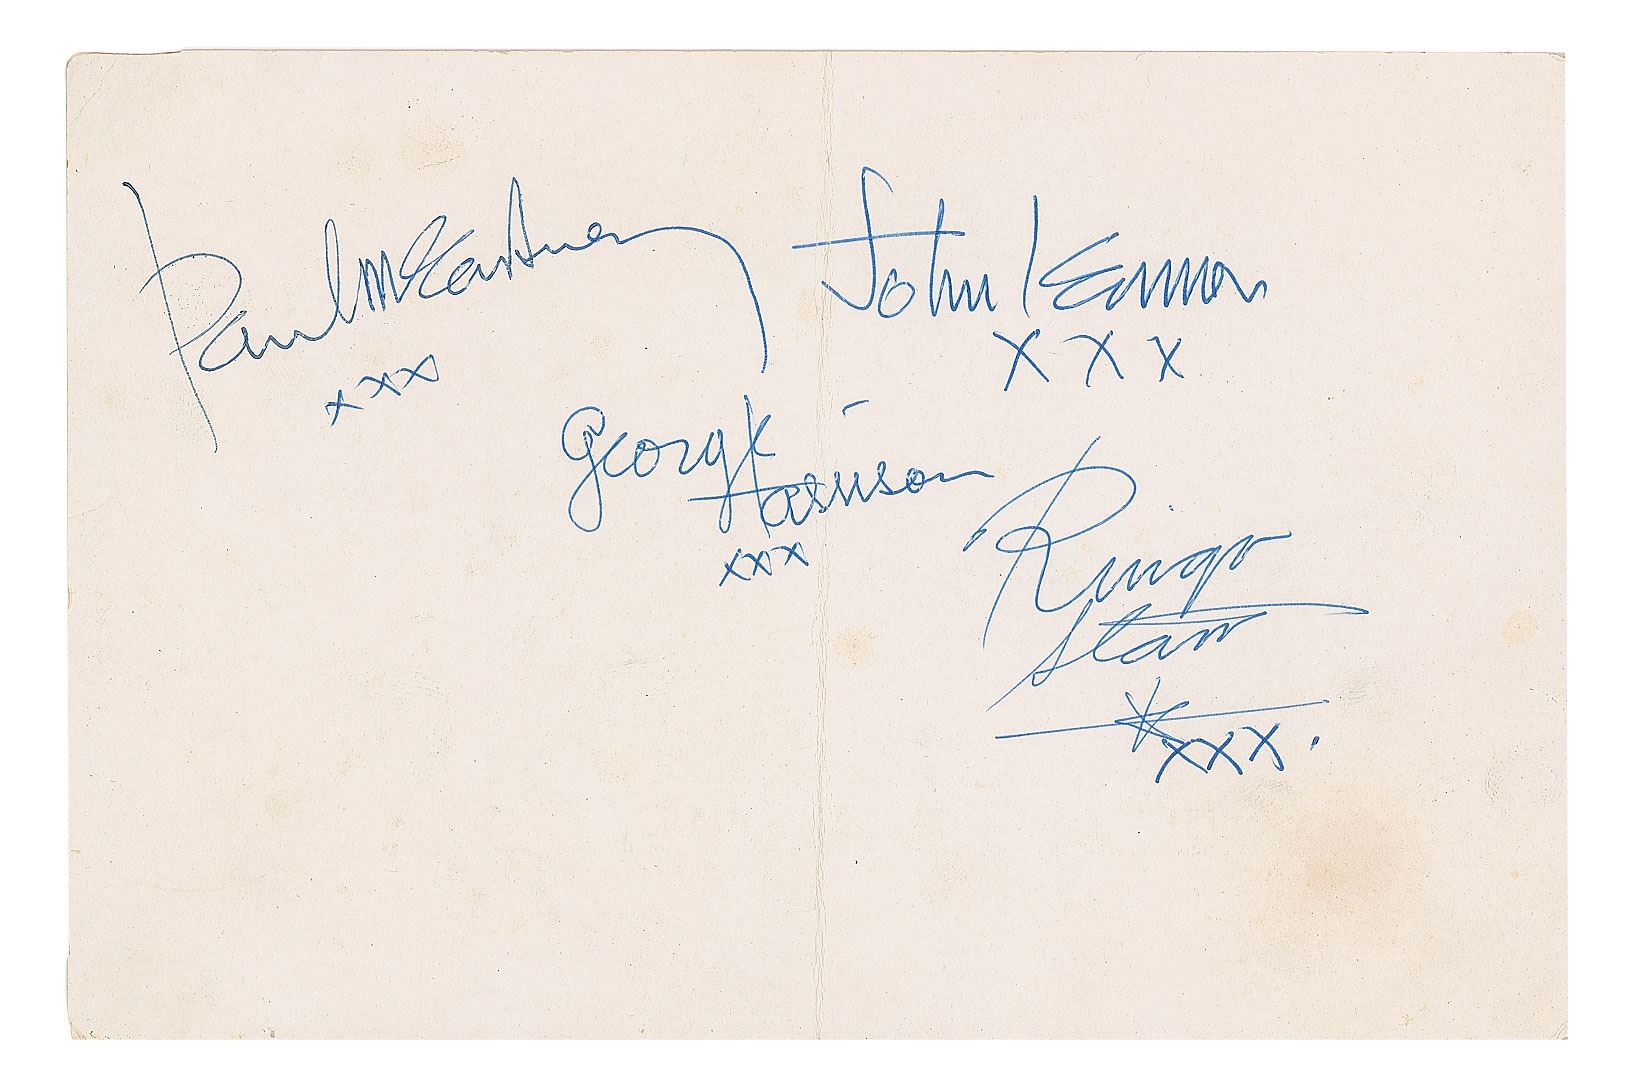 Paul McCartney
xxx
John Lennon
x x x
George Harrison
xxx
Ringo
Starr
xxx.